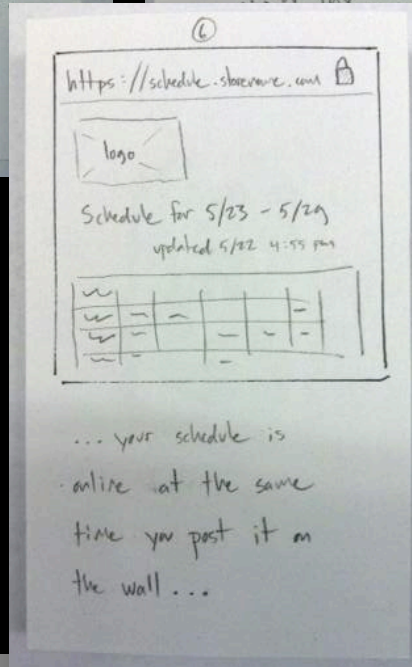 6
https://schedule.storename.com
logo
Schedule for 5/23 - 5/29
updated 5/22 4:55 pm
... your schedule is
online at the same
time you post it on
the wall ...